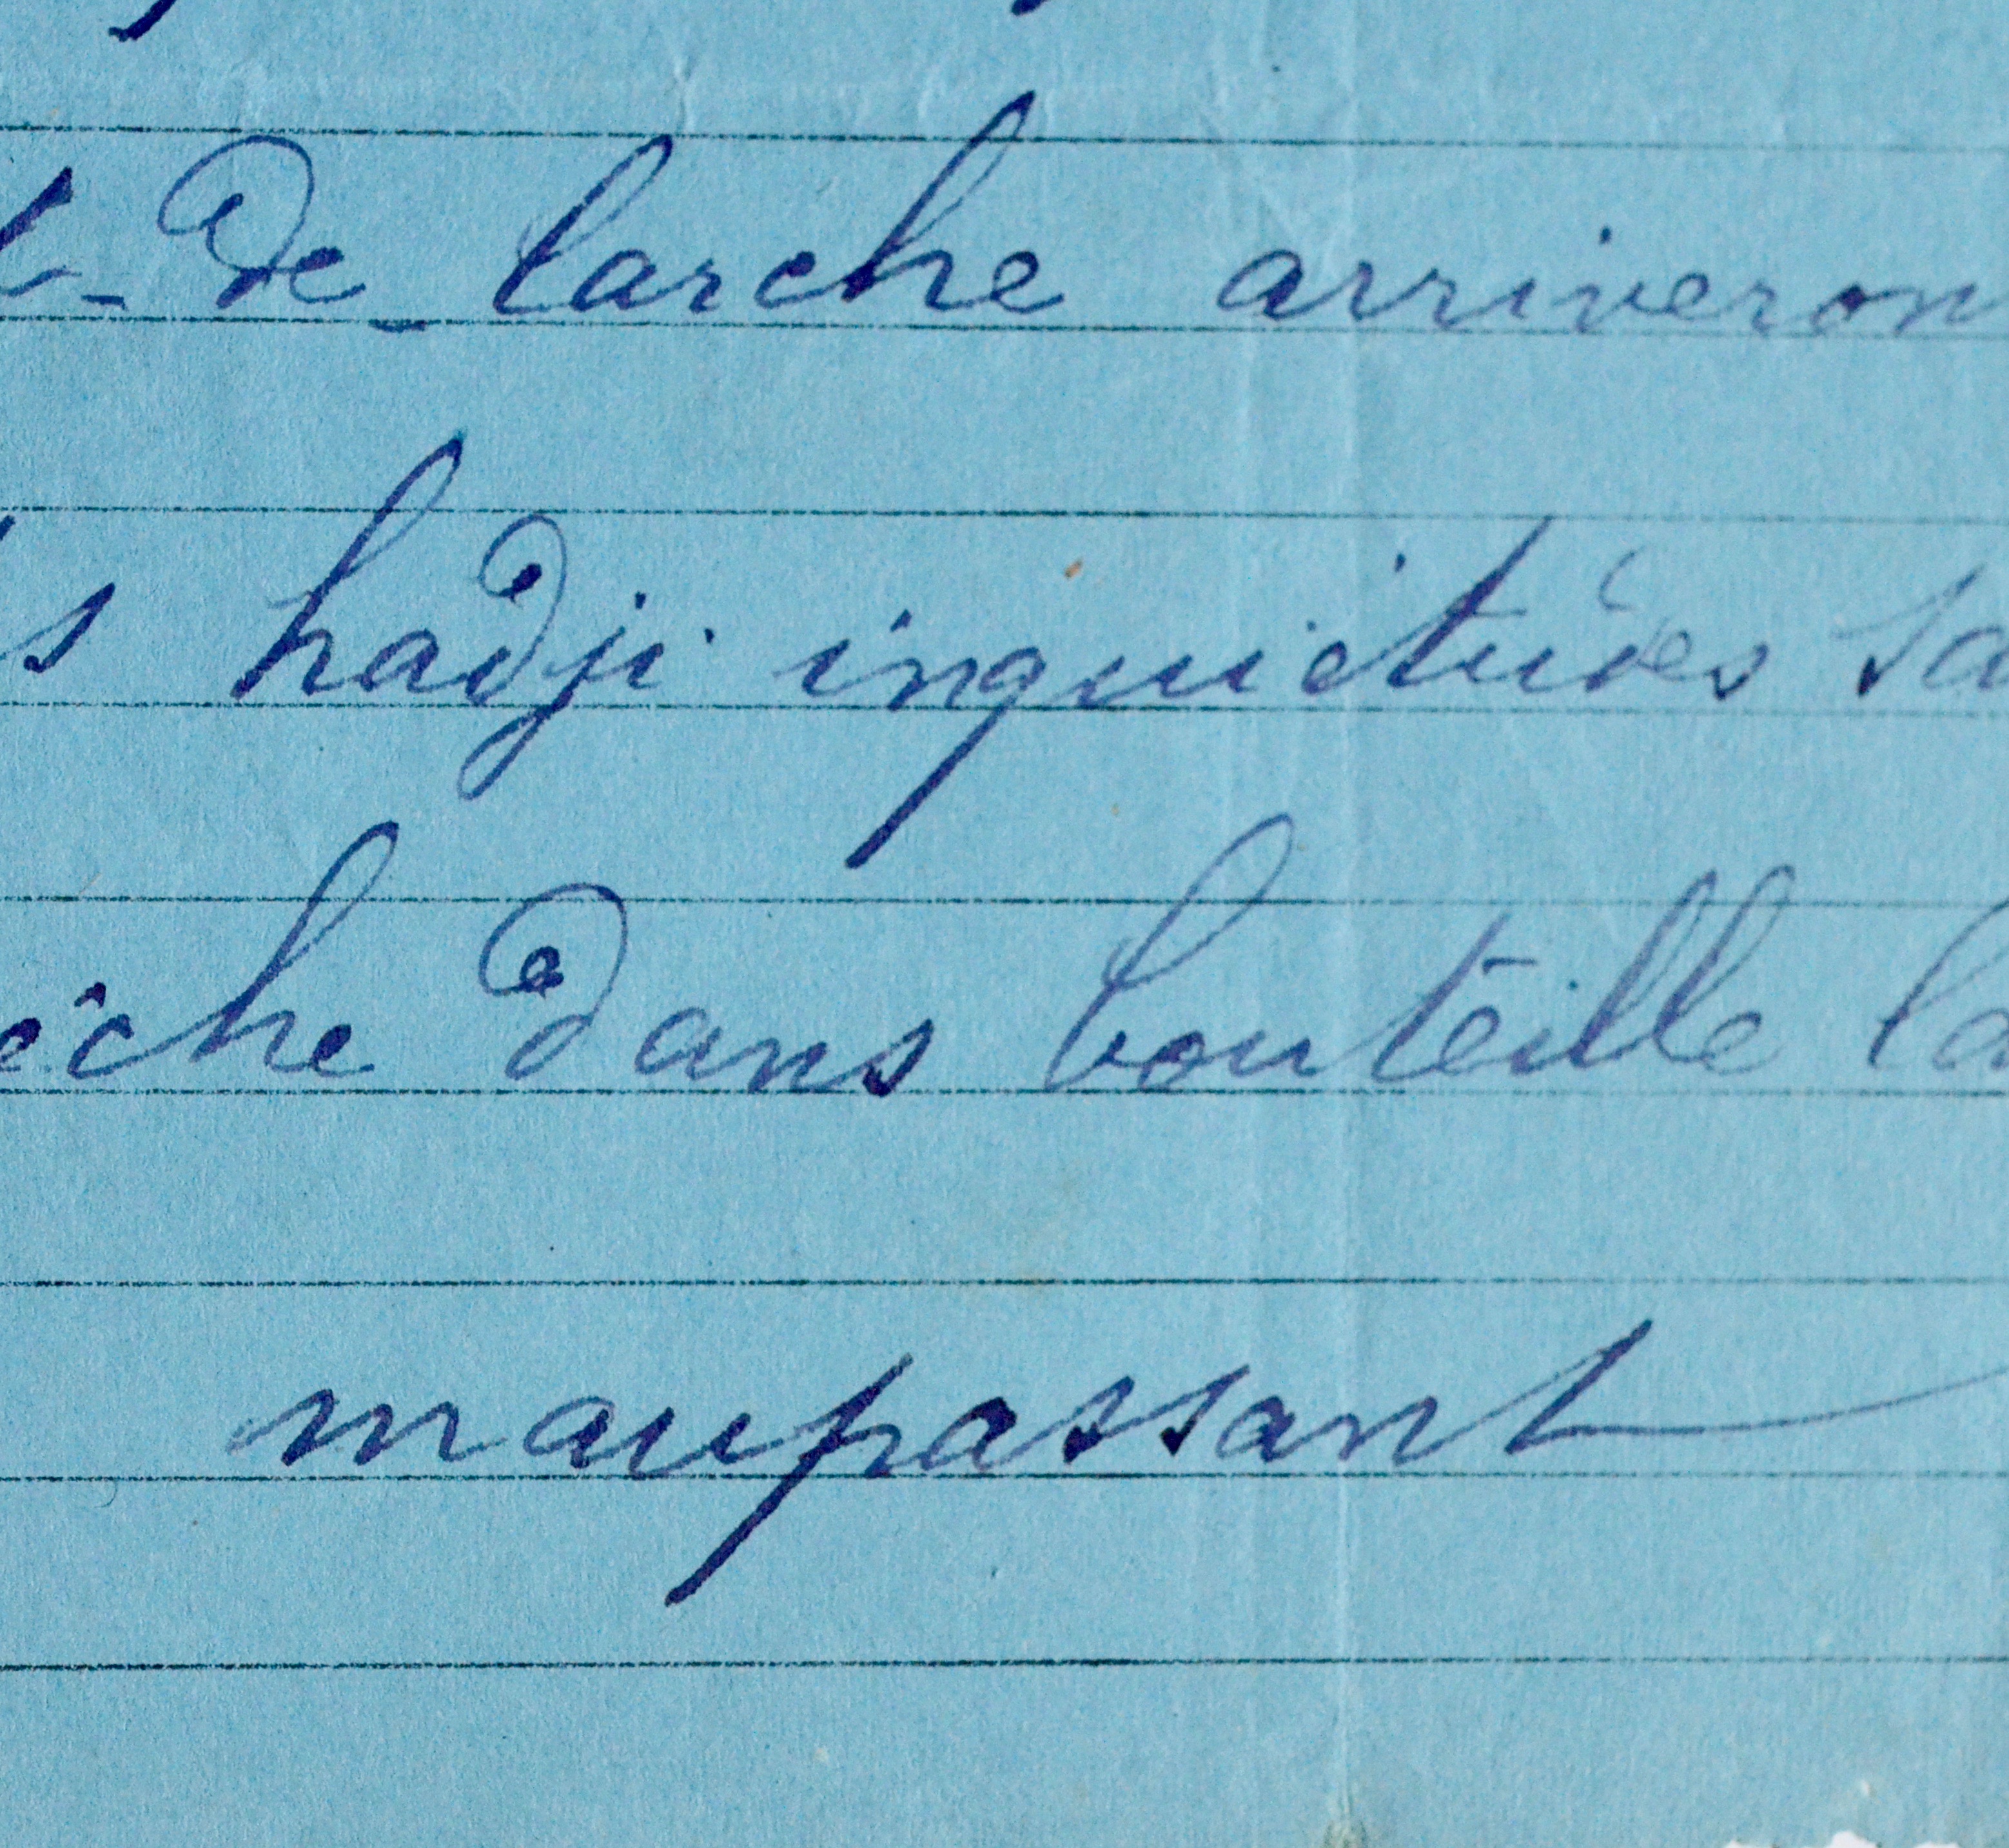 -de-larche arriveron
s hadji inquietudes sa
êche dans bouteille la
maupassant